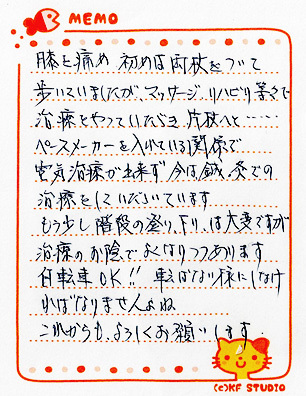 MEMO
膝を痛め 初めは両杖をついて
歩いていましたが、マッサージ、リハビリ等々で
治療をやっていただき 片杖へと……
ペースメーカーを入れている関係で
電気治療が出来ず 今は鍼、灸での
治療をしていただいています
もう少し 階段の登り、下り、は大変ですが
治療のお陰でよくなりつつあります
自転車OK!! 転ばない様にしなけ
ればなりませんよね
これからも、よろしくお願いします.
(c)KF STUDIO